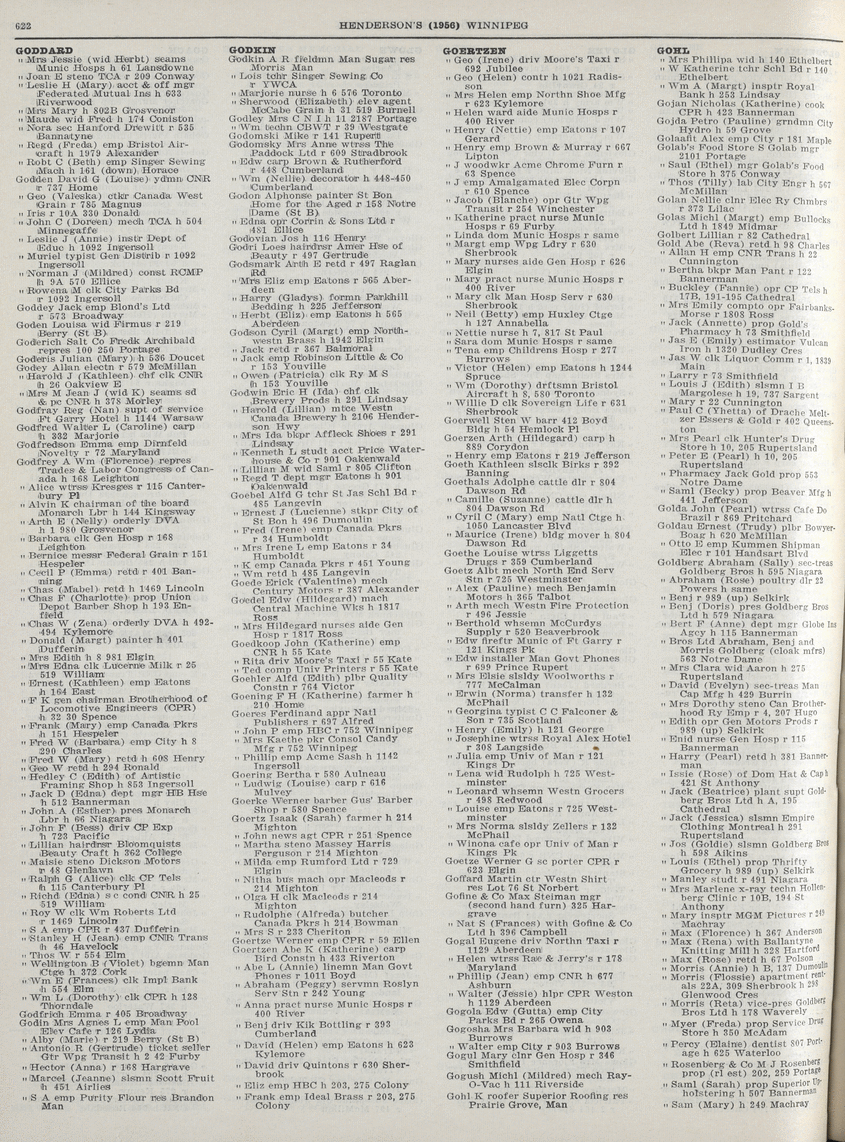 622
HENDERSON'S (1956) WINNIPEG
GODDARD
" Mrs Jessie (wid Herbt) seams
Munic Hosps h 61 Lansdowne
" Joan E steno TCA r 209 Conway
" Leslie H (Mary) acct & off mgr
Federated Mutual Ins h 603
Riverwood
" Mrs Mary h 802B Grosvenor
" Maude wid Fred h 174 Coniston
" Nora sec Hanford Drewitt r 535
Bannatyne
" Regd (Freda) emp Bristol Air-
craft h 1979 Alexander
" Robt C (Beth) emp Singer Sewing
Mach h 161 (down) Horace
Godden David G (Louise) ydmn CNR
r 737 Home
" Geo (Valeska) ctkr Canada West
Grain r 785 Magnus
" Iris r 10A 330 Donald
" John C (Doreen) mech TCA h 504
Minnegaffe
" Leslie J (Annie) instr Dept of
Educ h 1092 Ingersoll
" Muriel typist Gen Distrib r 1092
Ingersoll
" Norman J (Mildred) const RCMP
h 9A 570 Ellice
" Rowena M clk City Parks Bd
r 1092 Ingersoll
Goddey Jack emp Blond's Ltd
r 573 Broadway
Goden Louisa wid Firmus r 219
Berry (St B)
Goderich Salt Co Fredk Archibald
repres 100 250 Portage
Goderis Julian (Mary) h 536 Doucet
Godey Allan electn r 579 McMillan
" Harold J (Kathleen) chf clk CNR
h 26 Oakview E
" Mrs M Jean J (wid K) seams sd
& pc CNR h 378 Morley
Godfray Reg (Nan) supt of service
Ft Garry Hotel h 1144 Warsaw
Godfred Walter L (Caroline) carp
h 332 Marjorie
Godfredson Emma emp Dirnfeld
Novelty r 72 Maryland
Godfrey A Wm (Florence) repres
Trades & Labor Congress of Can-
ada h 168 Leighton
" Alice wtrss Kresges r 115 Canter-
bury Pl
" Alvin K chairman of the board
Monarch Lbr h 144 Kingsway
" Arth E (Nelly) orderly DVA
h 1 980 Grosvenor
" Barbara clk Gen Hosp r 168
Leighton
" Bernice messr Federal Grain r 151
Hespeler
" Cecil P (Emma) retd r 401 Ban-
ning
" Chas (Mabel) retd h 1469 Lincoln
" Chas F (Charlotte) prop Union
Depot Barber Shop h 193 En-
field
" Chas W (Zena) orderly DVA h 492-
494 Kylemore
" Donald (Margt) painter h 401
Dufferin
" Mrs Edith h 8 981 Elgin
" Mrs Edna clk Lucerne Milk r 25
519 William
" Ernest (Kathleen) emp Eatons
h 164 East
" F K gen chairman Brotherhood of
Locomotive Engineers (CPR)
h 32 30 Spence
" Frank (Mary) emp Canada Pkrs
h 151 Hespeler
" Fred W (Barbara) emp City h 8
290 Charles
" Fred W (Mary) retd h 608 Henry
" Geo W retd h 294 Ronald
" Hedley C (Edith) of Artistic
Framing Shop h 853 Ingersoll
" Jack D (Edna) dept mgr HB Hse
h 512 Bannerman
" John A (Esther) pres Monarch
Lbr h 66 Niagara
" John F (Bess) driv CP Exp
h 723 Pacific
" Lillian hairdrsr Bloomquists
Beauty Craft h 362 College
" Maisie steno Dickson Motors
r 48 Glenlawn
" Ralph G (Alice) clk CP Tels
h 115 Canterbury Pl
" Richd (Edna) s c cond CNR h 25
519 William
" Roy W clk Wm Roberts Ltd
r 1469 Lincoln
" S A emp CPR r 437 Dufferin
" Stanley H (Jean) emp CNR Trans
h 46 Havelock
" Thos W r 554 Elm
" Wellington B (Violet) bgemn Man
Ctge h 372 Cork
" Wm E (Frances) clk Impl Bank
h 554 Elm
" Wm L (Dorothy) clk CPR h 128
Thorndale
Godfrich Emma r 405 Broadway
Godin Mrs Agnes L emp Man Pool
Elev Cafe r 126 Lydia
" Alby (Marie) r 219 Berry (St B)
" Antonio R (Gertrude) ticket seller
Gtr Wpg Transit h 2 42 Furby
" Hector (Anna) r 168 Hargrave
" Marcel (Jeanne) slsmn Scott Fruit
h 451 Airlies
" S A emp Purity Flour res Brandon
Man
GODKIN
Godkin A R fieldmn Man Sugar res
Morris Man
" Lois tchr Singer Sewing Co
r YWCA
" Marjorie nurse h 6 576 Toronto
" Sherwood (Elizabeth) elev agent
McCabe Grain h 31 519 Burnell
Godley Mrs C N I h 11 2187 Portage
" Wm techn CBWT r 39 Westgate
Godomski Mike r 141 Rupert
Godomsky Mrs Anne wtrss The
Paddock Ltd r 609 Stradbrook
" Edw carp Brown & Rutherford
r 448 Cumberland
" Wm (Nellie) decorator h 448-450
Cumberland
Godon Alphonse painter St Bon
Home for the Aged r 158 Notre
Dame (St B)
" Edna opr Corrin & Sons Ltd r
481 Ellice
Godovian Jos h 116 Henry
Godri Loes hairdrsr Amer Hse of
Beauty r 497 Gertrude
Godsmark Arth E retd r 497 Raglan
Rd
" Mrs Eliz emp Eatons r 565 Aber-
deen
" Harry (Gladys) formn Parkhill
Bedding h 225 Jefferson
" Herbt (Eliz) emp Eatons h 565
Aberdeen
Godson Cyril (Margt) emp North-
westn Brass h 1942 Elgin
" Jack retd r 367 Balmoral
" Jack emp Robinson Little & Co
r 153 Youville
" Owen (Patricia) clk Ry M S
h 153 Youville
Godwin Eric H (Ida) chf clk
Brewery Prods h 291 Lindsay
" Harold (Lillian) mtce Westn
Canada Brewery h 2106 Hender-
son Hwy
" Mrs Ida bkpr Affleck Shoes r 291
Lindsay
" Kenneth L studt acct Price Water-
house & Co r 901 Oakenwald
" Lillian M wid Saml r 805 Clifton
" Regd T dept mgr Eatons h 901
Oakenwald
Goebel Alfd G tchr St Jas Schl Bd r
485 Langevin
" Ernest J (Lucienne) stkpr City of
St Bon h 496 Dumoulin
" Fred (Irene) emp Canada Pkrs
r 34 Humboldt
" Mrs Irene L emp Eatons r 34
Humboldt
" K emp Canada Pkrs r 451 Young
" Wm retd h 485 Langevin
Goede Erick (Valentine) mech
Century Motors r 387 Alexander
Goedel Edw (Hildegard) mach
Central Machine Wks h 1817
Ross
" Mrs Hildegard nurses aide Gen
Hosp r 1817 Ross
Goedkoop John (Katherine) emp
CNR h 55 Kate
" Rita driv Moore's Taxi r 55 Kate
" Ted comp Univ Printers r 55 Kate
Goehler Alfd (Edith) plbr Quality
Constn r 764 Victor
Goening F H (Katherine) farmer h
210 Home
Goeres Ferdinand appr Natl
Publishers r 697 Alfred
" John P emp HBC r 752 Winnipeg
" Mrs Kaethe pkr Consol Candy
Mfg r 752 Winnipeg
" Phillip emp Acme Sash h 1142
Ingersoll
Goering Bertha r 580 Aulneau
" Ludwig (Louise) carp r 616
Mulvey
Goerke Werner barber Gus' Barber
Shop r 580 Spence
Goertz Isaak (Sarah) farmer h 214
Mighton
" John news agt CPR r 251 Spence
" Martha steno Massey Harris
Ferguson r 214 Mighton
" Milda emp Rumford Ltd r 729
Elgin
" Nitha bus mach opr Macleods r
214 Mighton
" Olga H clk Macleods r 214
Mighton
" Rudolphe (Alfreda) butcher
Canada Pkrs h 214 Bowman
" Mrs S r 233 Cheriton
Goertze Werner emp CPR r 59 Ellen
Goertzen Abe K (Katherine) carp
Bird Constn h 433 Riverton
" Abe L (Annie) linemn Man Govt
Phones r 1011 Boyd
" Abraham (Peggy) servmn Roslyn
Serv Stn r 242 Young
" Anna pract nurse Munic Hosps r
400 River
" Benj driv Kik Bottling r 393
Cumberland
" David (Helen) emp Eatons h 623
Kylemore
" David driv Quintons r 630 Sher-
brook
" Eliz emp HBC h 203, 275 Colony
" Frank emp Ideal Brass r 203, 275
Colony
GOERTZEN
" Geo (Irene) driv Moore's Taxi r
692 Jubilee
" Geo (Helen) contr h 1021 Radis-
son
" Mrs Helen emp Northn Shoe Mfg
r 623 Kylemore
" Helen ward aide Munic Hosps r
400 River
" Henry (Nettie) emp Eatons r 107
Gerard
" Henry emp Brown & Murray r 667
Lipton
" J woodwkr Acme Chrome Furn r
63 Spence
" J emp Amalgamated Elec Corpn
r 610 Spence
" Jacob (Blanche) opr Gtr Wpg
Transit r 254 Winchester
" Katherine pract nurse Munic
Hosps r 69 Furby
" Linda dom Munic Hosps r same
" Margt emp Wpg Ldry r 630
Sherbrook
" Mary nurses aide Gen Hosp r 626
Elgin
" Mary pract nurse Munic Hosps r
400 River
" Mary clk Man Hosp Serv r 630
Sherbrook
" Neil (Betty) emp Huxley Ctge
h 127 Annabella
" Nettie nurse h 7, 817 St Paul
" Sara dom Munic Hosps r same
" Tena emp Childrens Hosp r 277
Burrows
" Victor (Helen) emp Eatons h 1244
Spruce
" Wm (Dorothy) drftsmn Bristol
Aircraft h 8, 580 Toronto
" Willie D clk Sovereign Life r 631
Sherbrook
Goerwell Sten W barr 412 Boyd
Bldg h 54 Hemlock Pl
Goerzen Arth (Hildegard) carp h
889 Corydon
" Henry emp Eatons r 219 Jefferson
Goeth Kathleen slsclk Birks r 392
Banning
Goethals Adolphe cattle dlr r 804
Dawson Rd
" Camille (Suzanne) cattle dlr h
804 Dawson Rd
" Cyril C (Mary) emp Natl Ctge h
1050 Lancaster Blvd
" Maurice (Irene) bldg mover h 804
Dawson Rd
Goethe Louise wtrss Liggetts
Drugs r 359 Cumberland
Goetz Albt mech North End Serv
Stn r 725 Westminster
" Alex (Pauline) mech Benjamin
Motors h 365 Talbot
" Arth mech Westn Fire Protection
r 496 Jessie
" Berthold whsemn McCurdys
Supply r 520 Beaverbrook
" Edw fireftr Munic of Ft Garry r
121 Kings Pk
" Edw installer Man Govt Phones
r 699 Prince Rupert
" Mrs Elsie slsldy Woolworths r
777 McCalman
" Erwin (Norma) transfer h 132
McPhail
" Georgina typist C C Falconer &
Son r 735 Scotland
" Henry (Emily) h 121 George
" Josephine wtrss Royal Alex Hotel
r 308 Langside
" Julia emp Univ of Man r 121
Kings Dr
" Lena wid Rudolph h 725 West-
minster
" Leonard whsemn Westn Grocers
r 498 Redwood
" Louise emp Eatons r 725 West-
minster
" Mrs Norma slsldy Zellers r 132
McPhail
" Winona cafe opr Univ of Man r
Kings Pk
Goetze Werner G sc porter CPR r
623 Elgin
Goffard Martin ctr Westn Shirt
res Lot 76 St Norbert
Gofine & Co Max Steiman mgr
(second hand furn) 325 Har-
grave
" Nat S (Frances) with Gofine & Co
Ltd h 396 Campbell
Gogal Eugene driv Northn Taxi r
1129 Aberdeen
" Helen wtrss Rae & Jerry's r 178
Maryland
" Phillip (Jean) emp CNR h 677
Ashburn
" Walter (Jessie) hlpr CPR Weston
h 1129 Aberdeen
Gogola Edw (Gutta) emp City
Parks Bd r 265 Owena
Gogosha Mrs Barbara wid h 903
Burrows
" Walter emp City r 903 Burrows
Gogul Mary clnr Gen Hosp r 346
Smithfield
Gogush Michl (Mildred) mech Ray-
O-Vac h 111 Riverside
Gohl K roofer Superior Roofing res
Prairie Grove, Man
GOHL
" Mrs Phillipa wid h 140 Ethelbert
" W Katherine tchr Schl Bd r 140
Ethelbert
" Wm A (Margt) insptr Royal
Bank h 253 Lindsay
Gojan Nicholas (Katherine) cook
CPR h 423 Bannerman
Gojda Petro (Pauline) grndmn City
Hydro h 59 Grove
Golaafit Alex emp City r 181 Maple
Golab's Food Store S Golab mgr
2101 Portage
" Saul (Ethel) mgr Golab's Food
Store h 375 Conway
" Thos (Tilly) lab City Engr h 567
McMillan
Golan Nellie clnr Elec Ry Chmbrs
r 373 Lilac
Golas Michl (Margt) emp Bullocks
Ltd h 1849 Midmar
Golbert Lillian r 82 Cathedral
Gold Abe (Reva) retd h 98 Charles
" Allan H emp CNR Trans h 22
Cunnington
" Bertha bkpr Man Pant r 122
Bannerman
" Buckley (Fannie) opr CP Tels h
17B, 191-195 Cathedral
" Mrs Emily compto opr Fairbanks-
Morse r 1808 Ross
" Jack (Annette) prop Gold's
Pharmacy h 73 Smithfield
" Jas E (Emily) estimator Vulcan
Iron h 1320 Dudley Cres
" Jas W clk Liquor Comm r 1, 1839
Main
" Larry r 73 Smithfield
" Louis J (Edith) slsmn I B
Margolese h 19, 737 Sargent
" Mary r 22 Cunnington
" Paul C (Yhetta) of Drache Melt-
zer Essers & Gold r 402 Queens-
ton
" Mrs Pearl clk Hunter's Drug
Store h 10, 205 Rupertsland
" Peter E (Pearl) h 10, 205
Rupertsland
" Pharmacy Jack Gold prop 553
Notre Dame
" Saml (Becky) prop Beaver Mfg h
441 Jefferson
Golda John (Pearl) wtrss Cafe Do
Brazil r 869 Pritchard
Goldau Ernest (Trudy) plbr Bowyer-
Boag h 620 McMillan
" Otto E emp Kummen Shipman
Elec r 101 Handsart Blvd
Goldberg Abraham (Sally) sec-treas
Goldberg Bros h 595 Niagara
" Abraham (Rose) poultry dlr 22
Powers h same
" Benj r 989 (up) Selkirk
" Benj (Doris) pres Goldberg Bros
Ltd h 579 Niagara
" Bert F (Anne) dept mgr Globe Ins
Agcy h 115 Bannerman
" Bros Ltd Abraham, Benj and
Morris Goldberg (cloak mfrs)
563 Notre Dame
" Mrs Clara wid Aaron h 275
Rupertsland
" David (Evelyn) sec-treas Man
Cap Mfg h 429 Burrin
" Mrs Dorothy steno Can Brother-
hood Ry Emp r 4, 207 Hugo
" Edith opr Gen Motors Prods r
989 (up) Selkirk
" Enid nurse Gen Hosp r 115
Bannerman
" Harry (Pearl) retd h 381 Banner-
man
" Issie (Rose) of Dom Hat & Cap h
421 St Anthony
" Jack (Beatrice) plant supt Gold-
berg Bros Ltd h A, 195
Cathedral
" Jack (Jessica) slsmn Empire
Clothing Montreal h 291
Rupertsland
" Jos (Goldie) slsmn Goldberg Bros
h 598 Aikins
" Louis (Ethel) prop Thrifty
Grocery h 989 (up) Selkirk
" Manley studt r 491 Niagara
" Mrs Marlene x-ray techn Hollen-
berg Clinic r 10B, 194 St
Anthony
" Mary insptr MGM Pictures r 249
Machray
" Max (Florence) h 367 Anderson
" Max (Rena) with Ballantyne
Knitting Mill h 328 Hartford
" Max (Rose) retd h 67 Polson
" Morris (Annie) h B, 137 Dumoulin
" Morris (Flossie) apartment rent-
als 22A, 309 Sherbrook h 298
Glenwood Cres
" Morris (Reta) vice-pres Goldberg
Bros Ltd h 178 Waverly
" Myer (Freda) prop Service Drug
Store h 350 McAdam
" Percy (Elaine) dentist 807 Port-
age h 625 Waterloo
" Rosenberg & Co M J Rosenberg
prop (rl est) 202, 259 Portage
" Saml (Sarah) prop Superior Up-
holstering h 507 Bannerman
" Sam (Mary) h 249 Machray